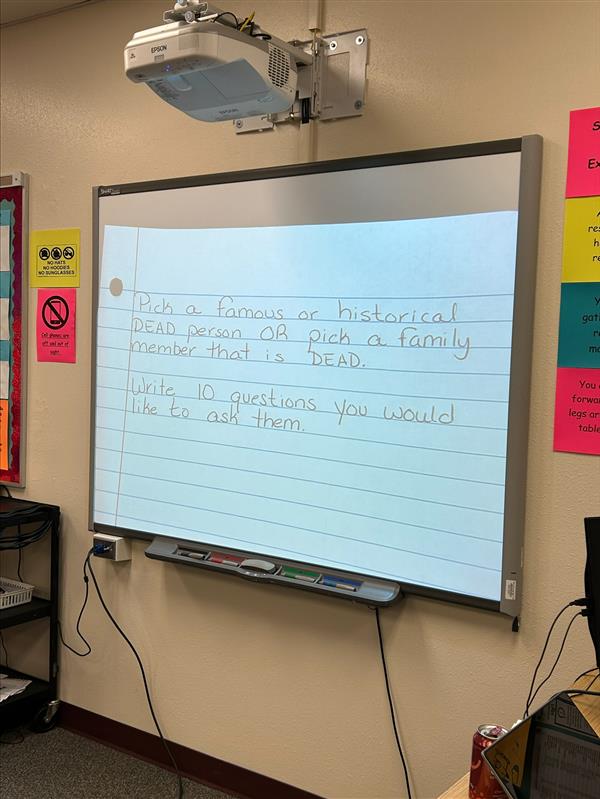 EPSON
EPSON
NO HATS
NO HOODIES
NO SUNGLASSES
Cell phones are
off and out of
sight.
Pick a famous or historical
DEAD person OR pick a family
member that is DEAD.
Write 10 questions you would
like to ask them.
S
Ex
res
h
re
Y
gat
r
mo
You
forwar
legs ar
table